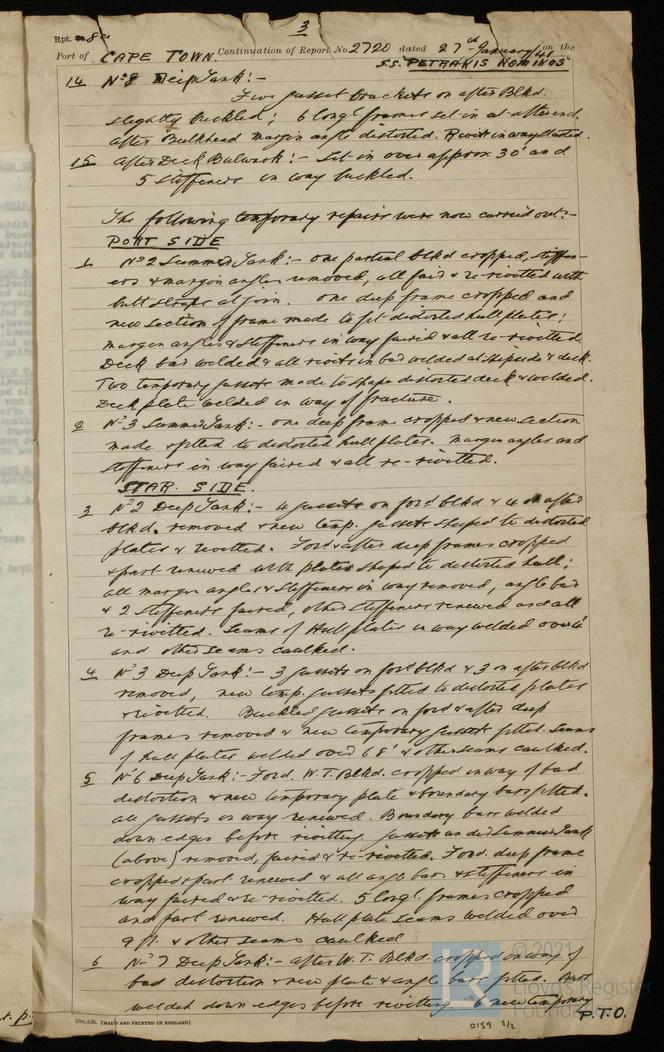 3
Rpt. 8c
Port of CAPE TOWN. Continuation of Report No 2720 dated 27th January/41 on the
S.S. PETRAKIS NOMIKOS
14 No 8 Deep Tank:-
Five gusset brackets on after Blkd.
slightly buckled; 6 longl frames set in at after end.
After Bulkhead margin angle distorted. Rivets in way started.
15 After Deck Bulwark:- Set in over approx 30' and
5 stiffeners in way buckled.
The following temporary repairs were now carried out:-
PORT SIDE
1 No 2 Summer Tank:- one partial blkd cropped, stiffen-
ers & margin angles removed, all fair & re-rivetted with
butt straps at join. One deep frame cropped and
new section of frame made to fit distorted hull plates;
margin angles & stiffeners in way faired & all re-rivetted.
Deck bar welded & all rivets in bar welded at shipside & deck.
Two temporary gussets made to shape distorted deck & welded.
Deck plate welded in way of fracture.
2 No 3 Summer Tank:- one deep frame cropped & new section
made & fitted to distorted hull plates. Margin angles and
stiffeners in way faired & all re-rivetted.
STAR. SIDE.
3 No 2 Deep Tank:- 4 gussets on ford blkd & 4 on after
blkd. removed & new temp. gussets shaped to distorted
plates & rivetted. Ford & after deep frames cropped
& part renewed with plates shaped to distorted hull;
all margin angles & stiffeners in way removed, angle bar
& 2 stiffeners faired, other stiffeners renewed and all
re-rivetted. Seams of Hull plates in way welded over
and other seams caulked.
4 No 3 Deep Tank:- 3 gussets on ford blkd & 3 on after blkd
removed, new temp. gussets fitted to distorted plates
& rivetted. Buckled gussets on ford & after deep
frames removed & new temporary gussets fitted. Seams
of hull plates welded over 68' & other seams caulked.
5 No 6 Deep Tank:- Ford. W.T. Blkd. cropped in way of bad
distortion & new temporary plate & boundary bars fitted.
All gussets in way renewed. Boundary bars welded
down edges before rivetting. Gussets under Summer Tank
(above) removed, faired & re-rivetted. Ford. deep frame
cropped & part renewed & all angle bars & stiffeners in
way faired & re-rivetted. 5 longl. frames cropped
and part renewed. Hull plate seams welded over
9 ft. & other seams caulked
6 No 7 Deep Tank:- After W.T. Blkd. cropped in way of
bad distortion & new plate & angle bars fitted.
welded down edges before rivetting. 6 new temporary
P.T.O.
(MADE AND PRINTED IN ENGLAND)
0159 2/2
© 2021
Lloyd's Register
Foundation